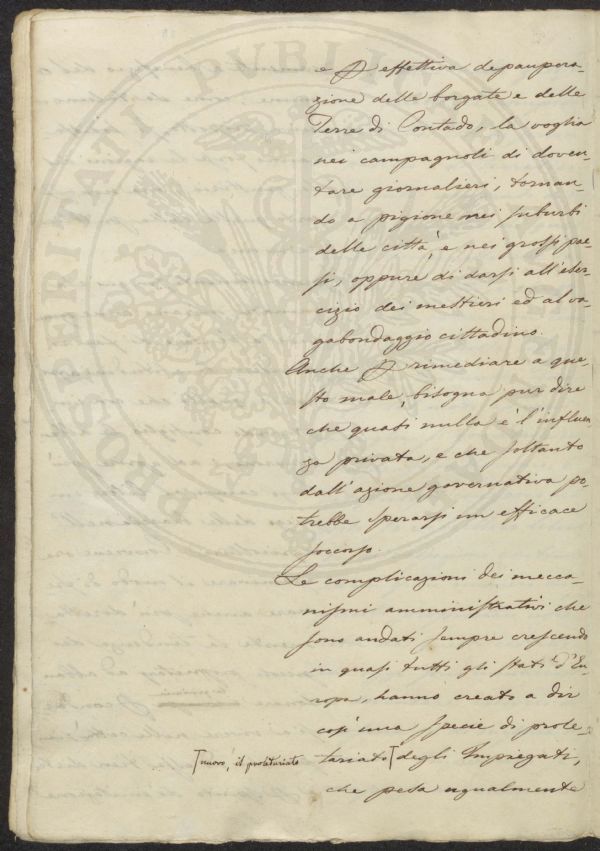 e p effettiva depaupera-
zione delle borgate e delle
Terre di Contado, la voglia
nei campagnoli di doven-
tare giornalieri, tornan-
do a pigione nei suburbi
delle città, e nei grossi pae-
si, oppure di darsi all'eser-
cizio dei mestieri ed al va-
gabondaggio cittadino.
Anche p rimediare a que-
sto male, bisogna pur dire
che quasi nulla è l'influen
za privata, e che soltanto
dall'azione governativa po-
trebbe sperarsi un efficace
soccorso.
Le complicazioni dei mecca-
nismi amministrativi che
sono andati sempre crescendo
in quasi tutti gli stati d'Eu
ropa, hanno creato a dir
così una specie di prole-
tariato degli Impiegati,
nuovo, il proletariato
che pesa ugualmente
PROSPERITATI PVBLI